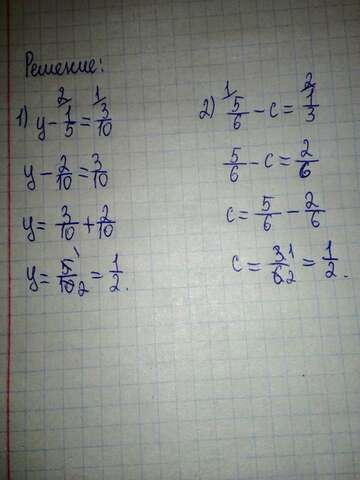 Решение:
1) y - 1/5 = 3/10
y - 2/10 = 3/10
y = 3/10 + 2/10
y = 5/10 = 1/2.
2) 5/6 - c = 1/3
5/6 - c = 2/6
c = 5/6 - 2/6
c = 3/6 = 1/2.